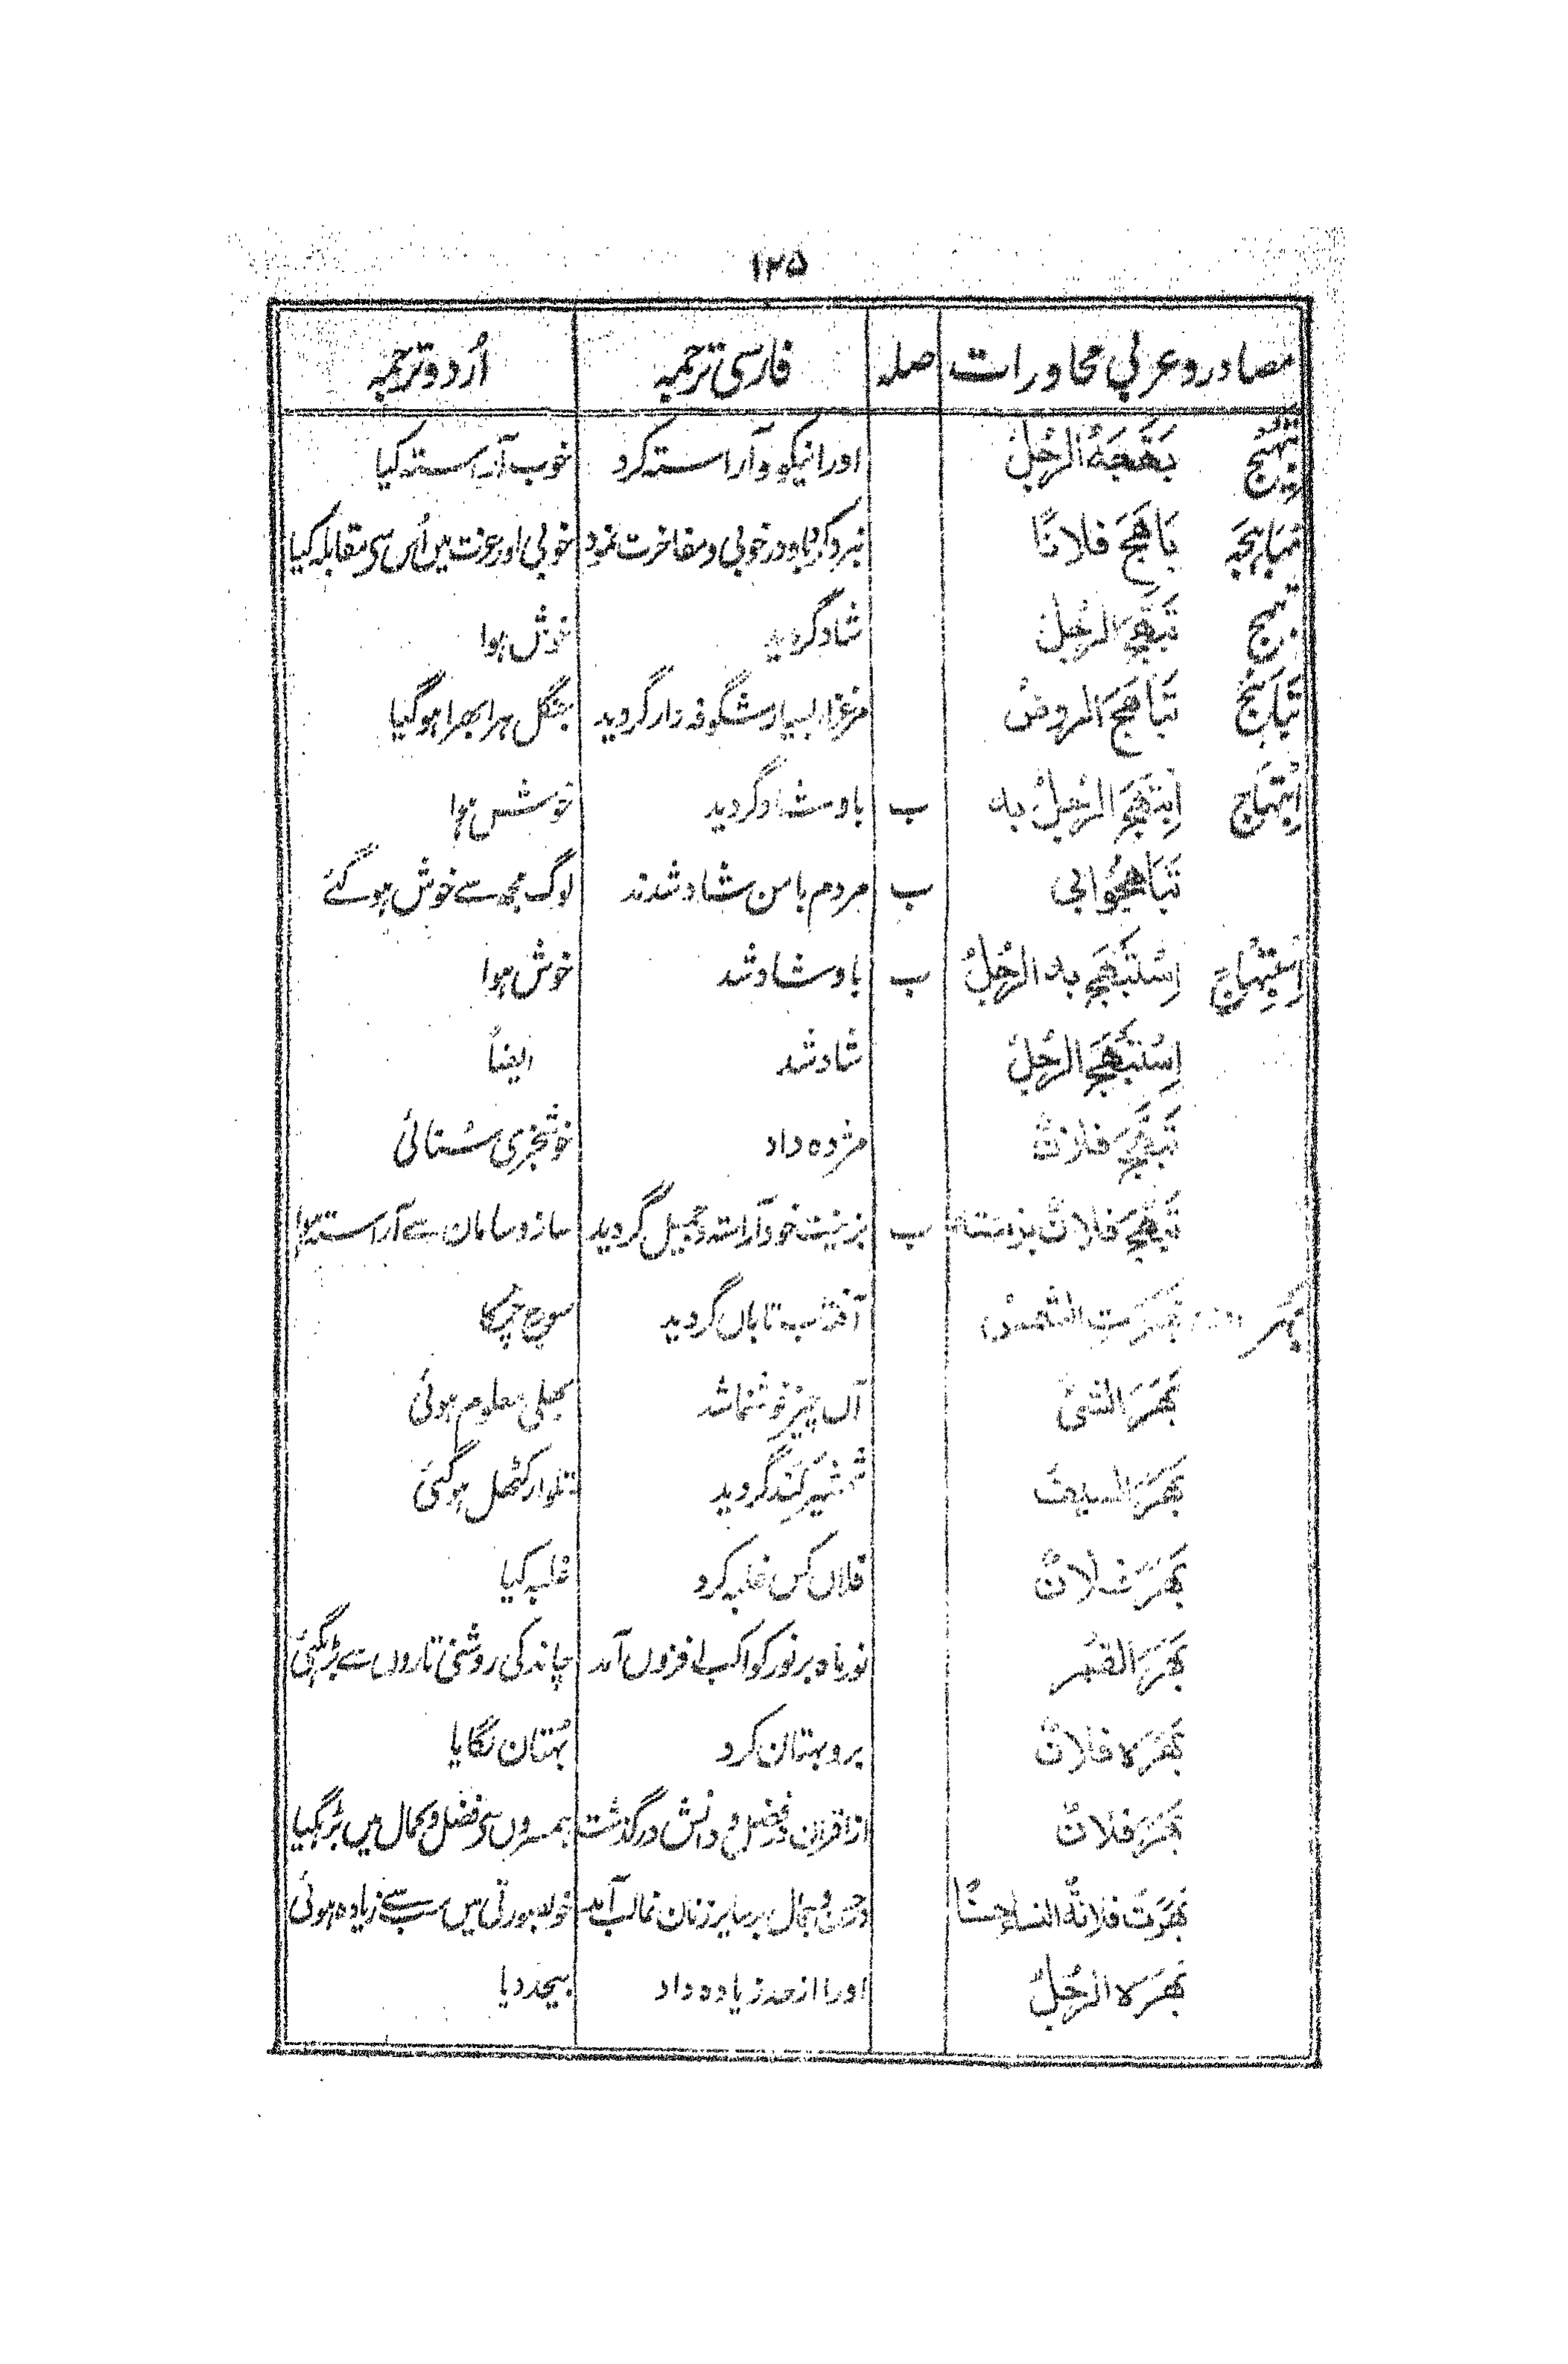 ۱۲۵
مصادر و عربی محاورات صلہ فارسی ترجمہ اُردو ترجمہ
تَبْهِیج بَهَّجَهُ الرَّجُلُ اورا نیکو و آراستہ کرد خوب آراستہ کیا
مُبَاہَجَہ بَاهَجَ فُلَانًا نبرد کرد باو در خوبی و مفاخرت نمود خوبی اور عزت میں اُس سی مقابلہ کیا
تَبَهُّج تَبَهَّجَ الرَّجُلُ شاد گردید خوش ہوا
تَبَاہُج تَبَاهَجَ الروضُ مرغزار بسیار شگوفہ دار گردید جنگل ہرا بھرا ہو گیا
اِبْتِہَاج اِبْتَهَجَ الرَّجُلُ بِہ ب باو شاد گردید خوش ہوا
تَبَاهَجُوا بی ب مردم بامن شاد شدند لوگ مجھ سے خوش ہو گئے
اِسْتِبْہَاج اِسْتَبْهَجَ بہ الرَّجُلُ ب باو شاد شد خوش ہوا
اِسْتَبْهَجَ الرَّجُلُ شاد شد ایضاً
تَبَهَّجَ فلانٌ مژدہ داد خوشخبری سُنائی
تَبَهَّجَ فلانٌ بزینتہ ب بزینت خود آراستہ و جمیل گردید ساز و سامان سے آراستہ ہوا
بَہَر بَهَرَتِ الشمسُ آفتاب تاباں گردید سورج چمکا
بَهَرَ الشیُ آں چیز خوشنما شد بھلی معلوم ہوئی
بَهَرَ السیفُ شمشیر کُند گردید تلوار کٹھل ہو گئی
بَهَرَ فلانٌ فلاں کس غلبہ کرد غلبہ کیا
بَهَرَ القمر نور ماہ بر نور کواکب افزوں آمد چاند کی روشنی تاروں سے بڑھ گئی
بَهَرَہ فلانٌ برو بہتان کرد بُہتان لگایا
بَهَرَ فلانٌ از اقران در فضل و دانش در گذشت ہمسروں سی فضل و کمال میں بڑہ گیا
بَهَرَتْ فلانۃُ النساءَ حسنًا در حسن و جمال بر سایر زنان غالب آمد خوبصورتی میں سب سے زیادہ ہوئی
بَهَرَہ الرَّجُلُ اورا از حد زیادہ داد بیحد دیا